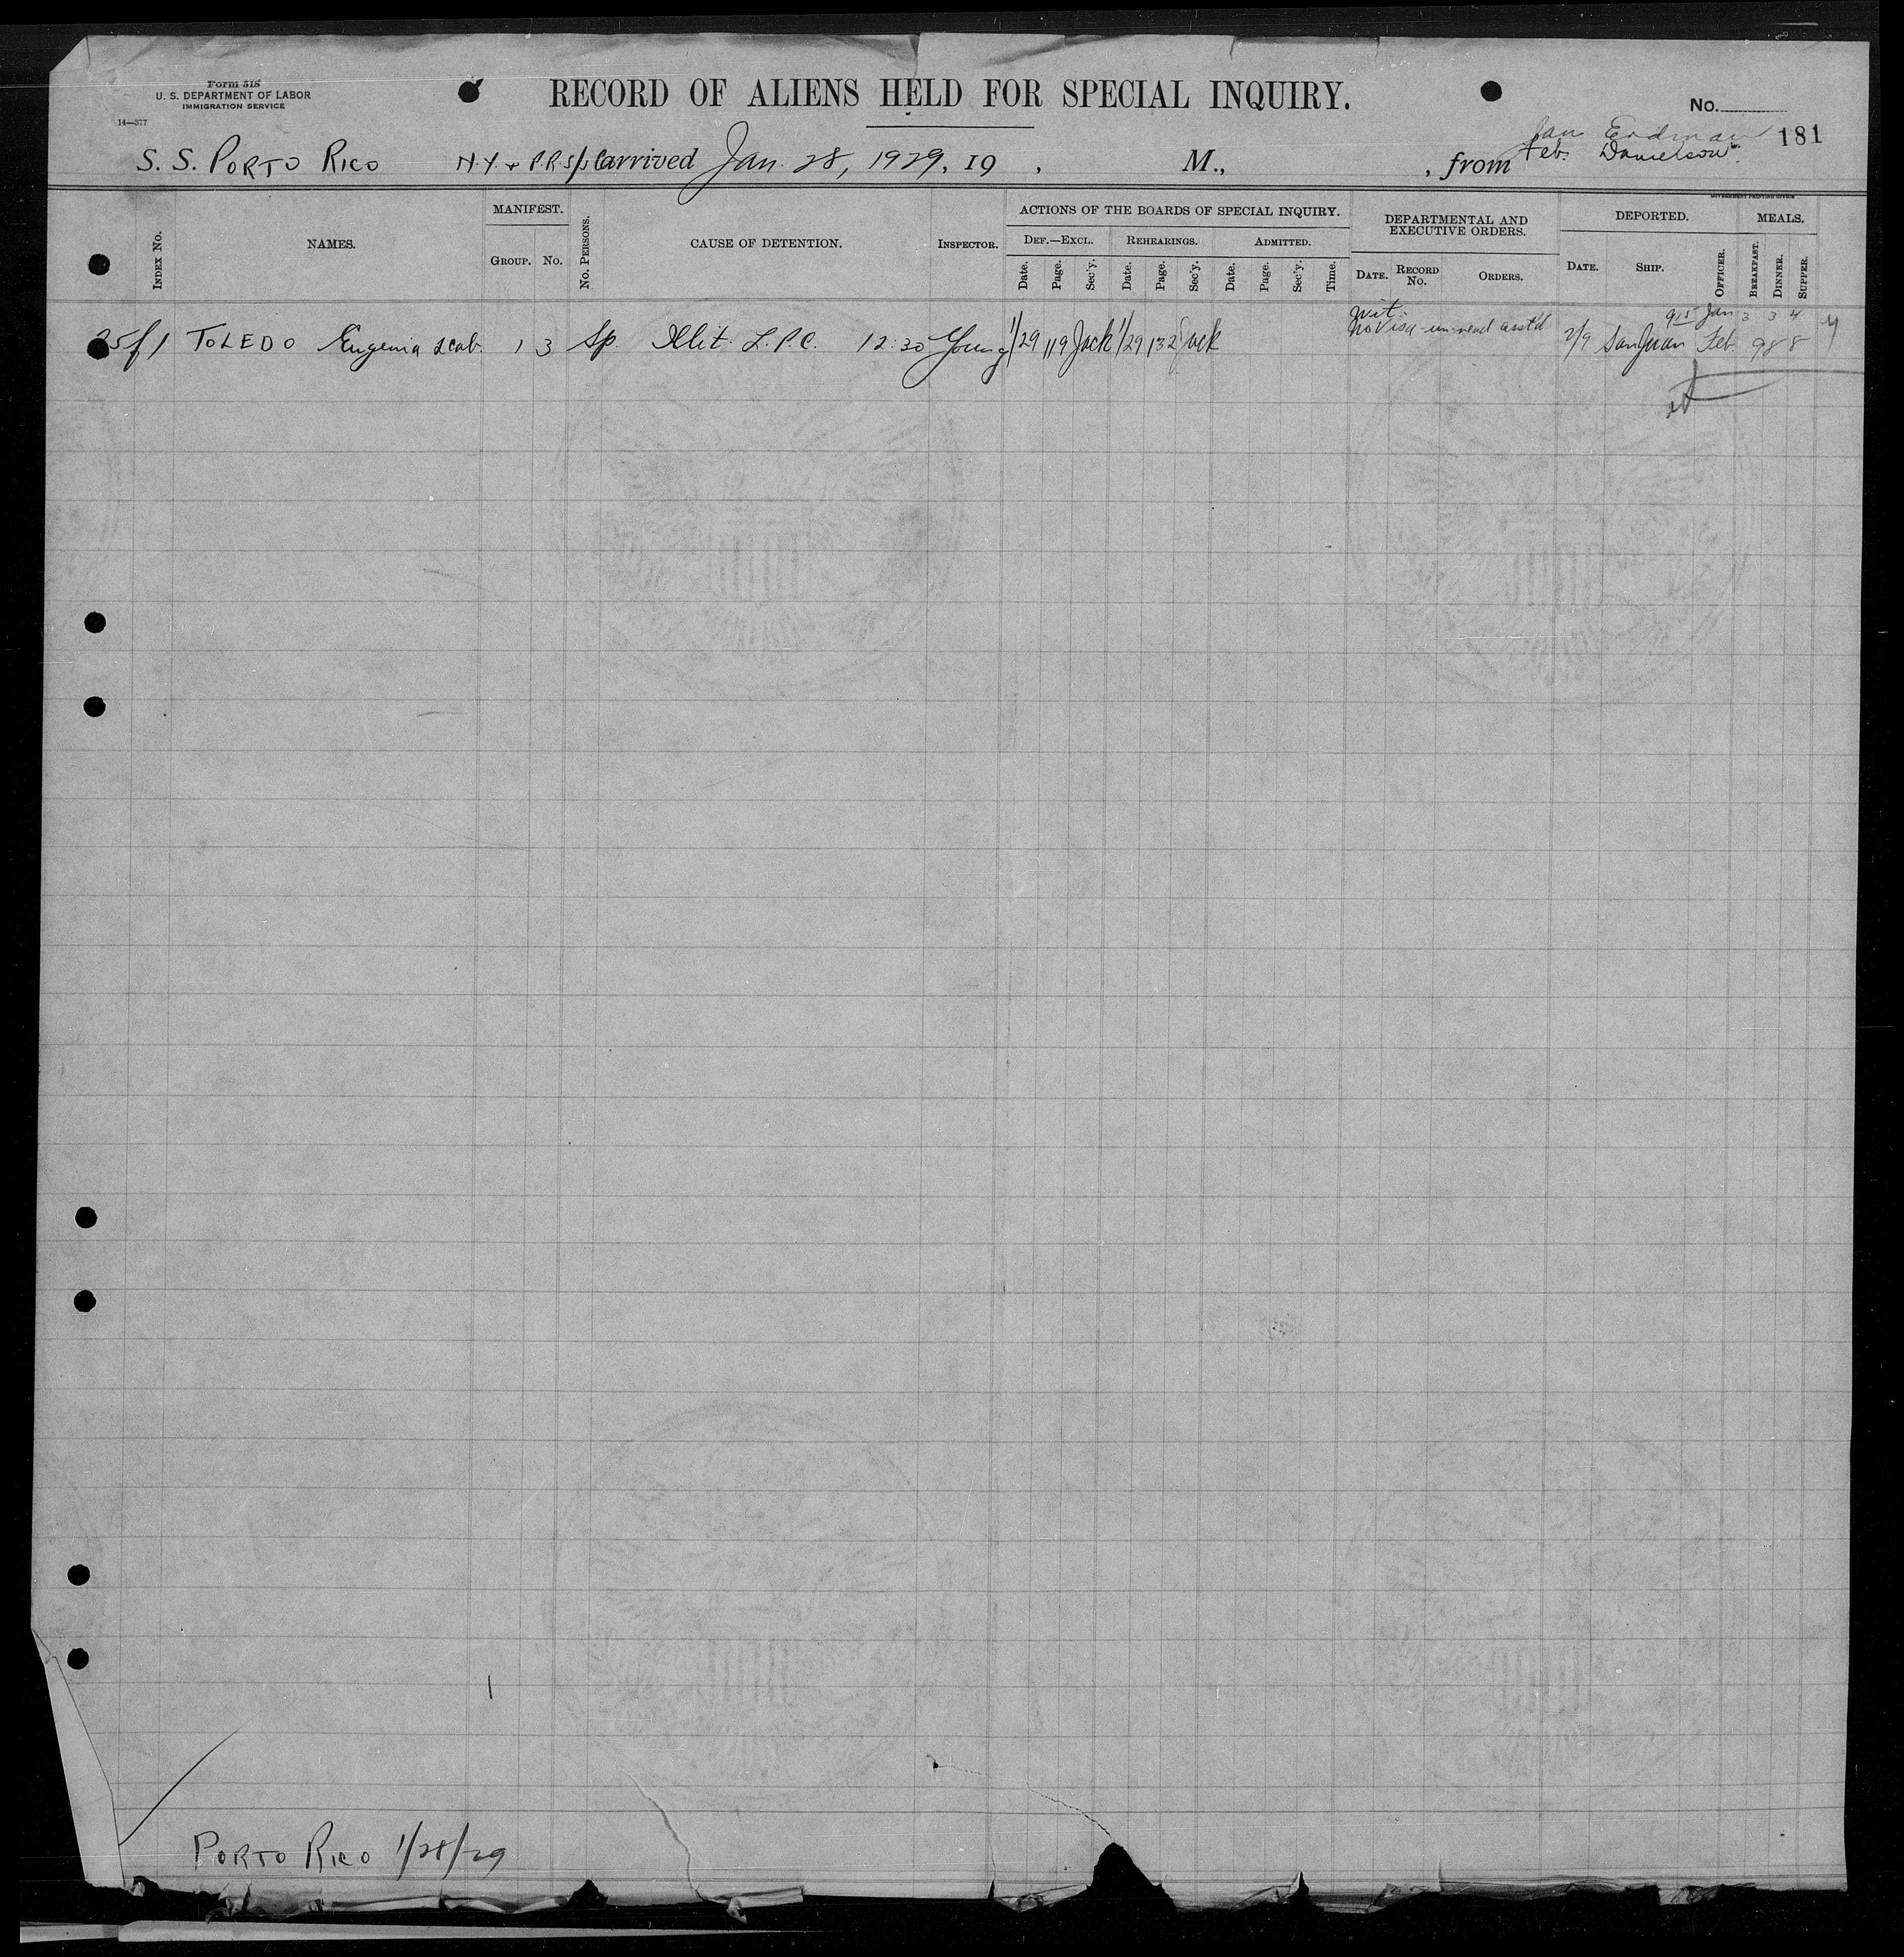 Form 518
U. S. DEPARTMENT OF LABOR
IMMIGRATION SERVICE
14—377
RECORD OF ALIENS HELD FOR SPECIAL INQUIRY.
No.
181
Jan Erdman
Feb. Danielson
S. S. PORTO RICO N.Y. & P.R. S/S Co arrived Jan. 28, 1929, 19 , M., , from
GOVERNMENT PRINTING OFFICE
INDEX NO.
NAMES.
MANIFEST.
GROUP. NO.
NO. PERSONS.
CAUSE OF DETENTION.
INSPECTOR.
ACTIONS OF THE BOARDS OF SPECIAL INQUIRY.
DEF.—EXCL. REHEARINGS. ADMITTED.
Date. Page. Sec'y. Date. Page. Sec'y. Date. Page. Sec'y. Time.
DEPARTMENTAL AND EXECUTIVE ORDERS.
DATE. RECORD NO. ORDERS.
DEPORTED.
DATE. SHIP. OFFICER.
MEALS.
BREAKFAST. DINNER. SUPPER.
wit. 915 Jan 3 3 4
f1 TOLEDO Eugenia 1 3 Sp. Illit. L.P.C. 12:30 Young 1/29 119 Jack 1/29 132 Jack no visa 2/9 San Juan Feb. 9 8 8
PORTO RICO 1/28/29